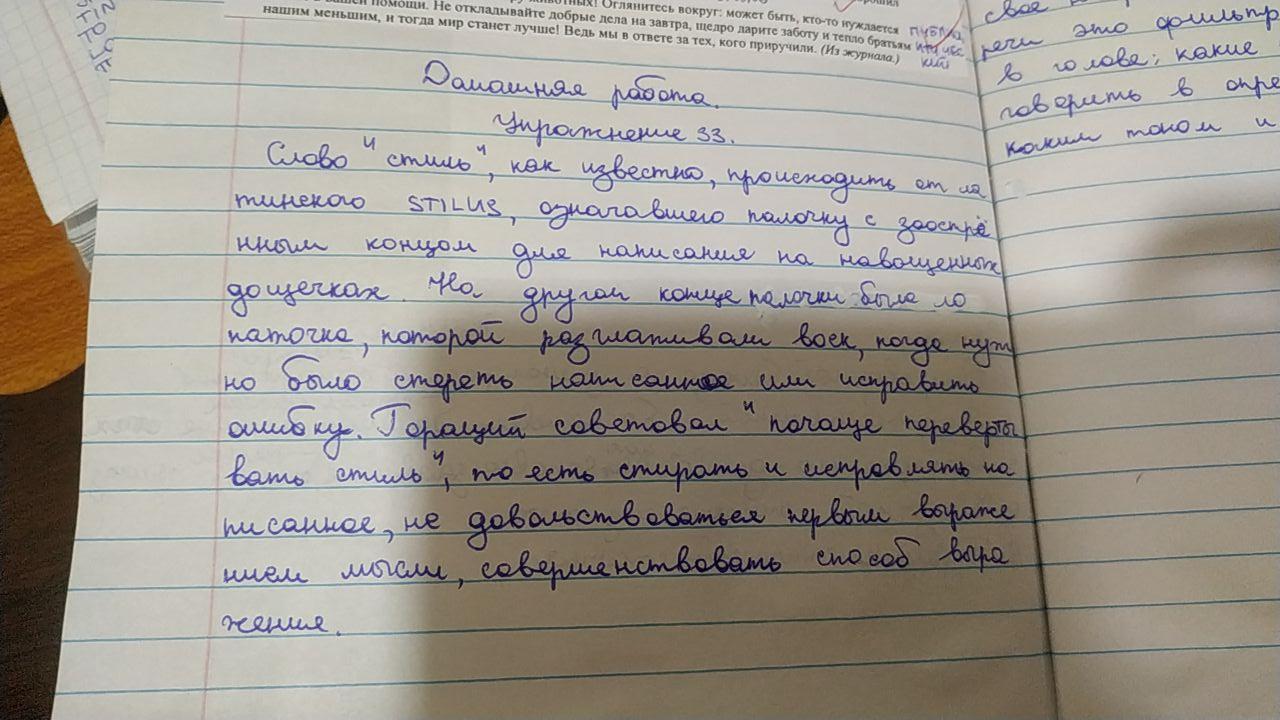 в вашей помощи. Не откладывайте добрые дела на завтра, щедро дарите заботу и тепло братьям
животных! Оглянитесь вокруг: может быть, кто-то нуждается
нашим меньшим, и тогда мир станет лучше! Ведь мы в ответе за тех, кого приручили. (Из журнала.)
Домашняя работа.
Упражнение 33.
Слово "стиль", как известно, происходить от ла
тинского STILUS, означавшего палочку с заострё
нным концом для написания на навощенных
дощечках. На другом конце палочки была ло
паточка, которой разглаживали воск, когда нуж
но было стереть написанное или исправить
ошибку. Гораций советовал "почаще переверты
вать стиль", то есть стирать и исправлять на
писанное, не довольствоваться первым выраже
нием мысли, совершенствовать способ выра
жения.
свое
речи это фильтр
в голове: какие
говорить в опре
каким тоном и